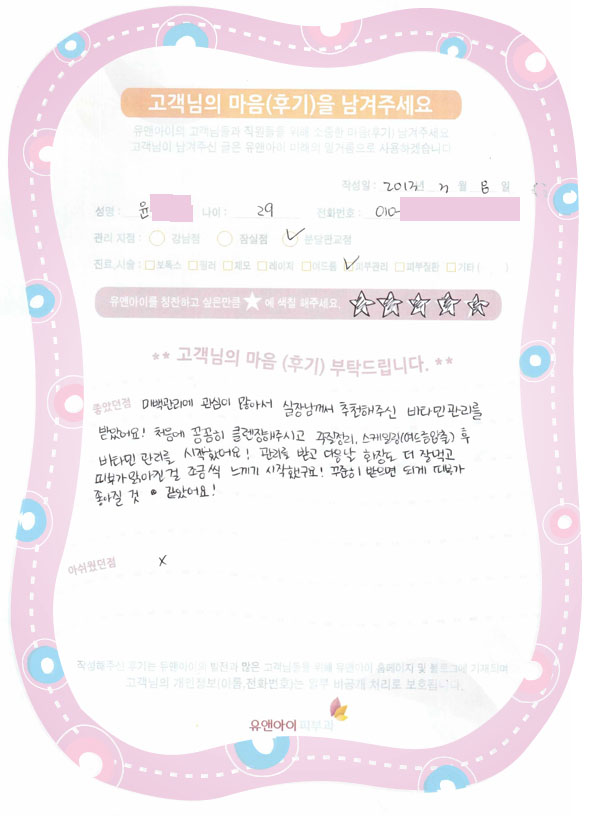 고객님의 마음(후기)을 남겨주세요
유앤아이의 고객님들과 직원들을 위해 소중한 마음(후기) 남겨주세요
고객님이 남겨주신 글은 유앤아이 미래의 밑거름으로 사용하겠습니다
작성일 : 2013년 월 일
성명 : 윤 나이 : 29 전화번호 : 010-
관리 지점 : 강남점 잠실점 분당판교점
진료,시술 : 보톡스 필러 제모 레이저 여드름 피부관리 피부질환 기타 ( )
유앤아이를 칭찬하고 싶은만큼 ★ 에 색칠 해주세요.
** 고객님의 마음 (후기) 부탁드립니다. **
좋았던점 미백관리에 관심이 많아서 실장님께서 추천해주신 비타민관리를
받았어요! 처음에 꼼꼼히 클렌징해주시고 각질정리, 스케일링(여드름압출) 후
비타민 관리를 시작했어요! 관리를 받고 다음날 화장도 더 잘먹고
피부가 맑아진걸 조금씩 느끼기 시작했구요! 꾸준히 받으면 되게 피부가
좋아질 것 같았어요!
아쉬웠던점 X
작성해주신 후기는 유앤아이의 발전과 많은 고객님들을 위해 유앤아이 홈페이지 및 블로그에 기재되며
고객님의 개인정보(이름,전화번호)는 일부 비공개 처리로 보호됩니다.
유앤아이 피부과